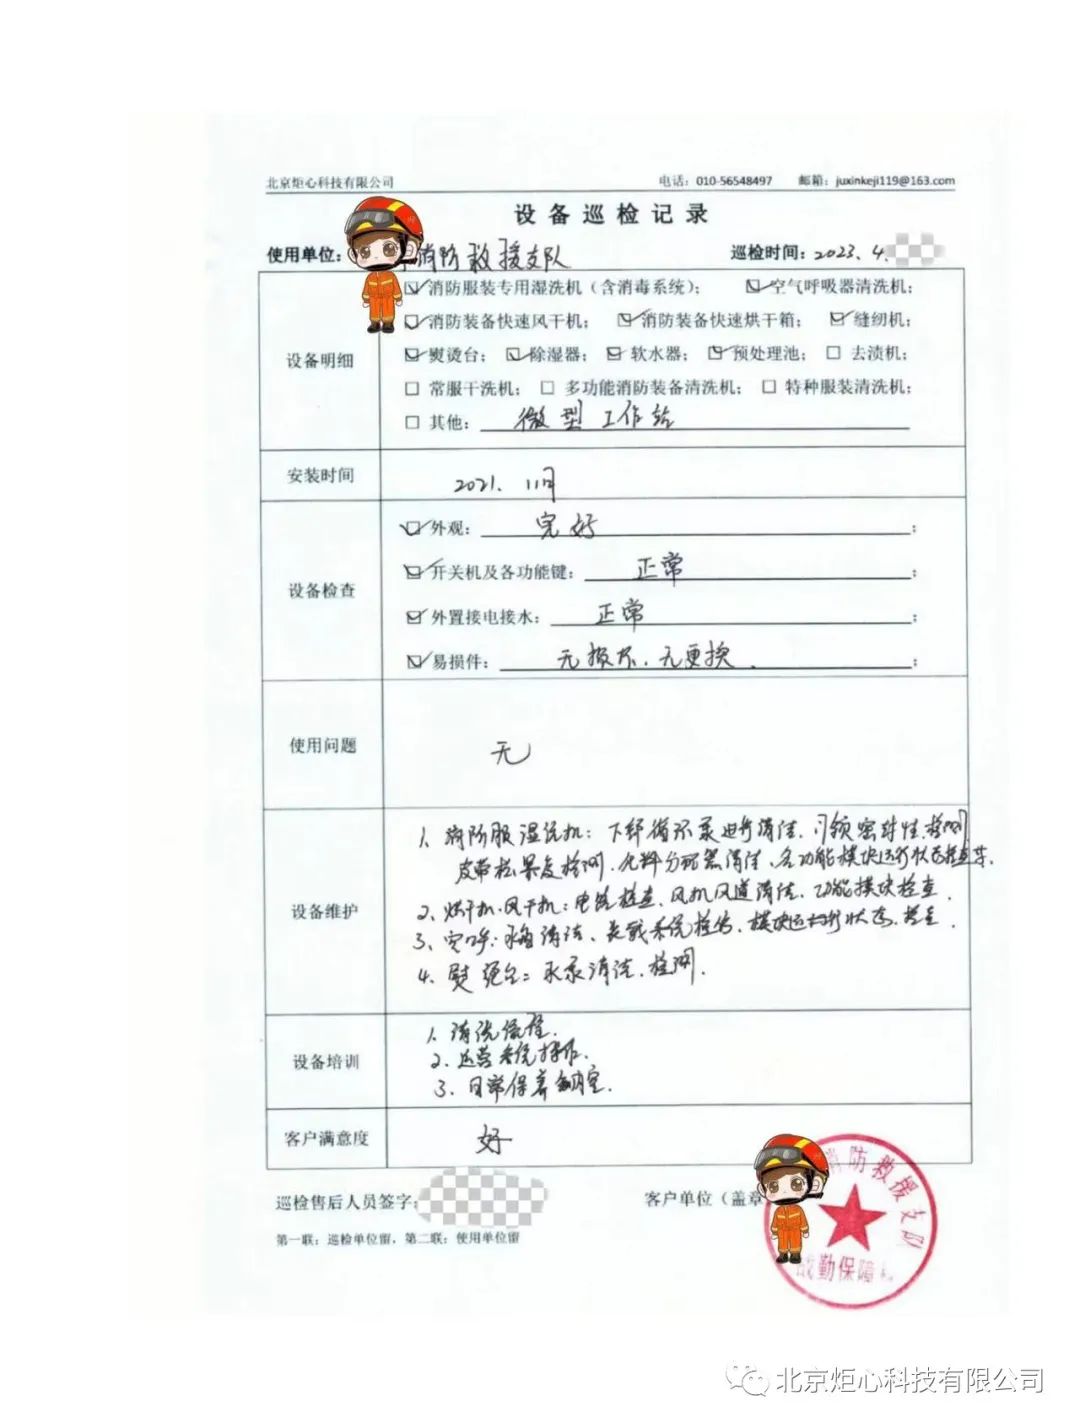 北京炬心科技有限公司 电话：010-56548497 邮箱：juxinkeji119@163.com
设备巡检记录
使用单位： 消防救援支队 巡检时间：2023.4.
设备明细
☑消防服装专用湿洗机（含消毒系统）； ☑空气呼吸器清洗机；
☑消防装备快速风干机； ☑消防装备快速烘干箱； ☑缝纫机；
☑熨烫台； ☑除湿器； ☑软水器； ☑预处理池； □去渍机；
□常服干洗机； □多功能消防装备清洗机； □特种服装清洗机；
□其他： 微型工作站
安装时间 2021.11月
设备检查
☑外观： 完好；
☑开关机及各功能键： 正常；
☑外置接电接水： 正常；
☑易损件： 无损坏、无更换.；
使用问题 无
设备维护
1、消防服湿洗机：下部循环泵进行清洁、门锁密封性检测
皮带松紧度检测、分配器清洁、各功能模块运行状态检查等.
2、烘干机、风干机：电路检查、风机风道清洁、功能模块检查.
3、空呼：水箱清洁、系统检、模块运行状态检查.
4、熨烫台：水泵清洁、检测.
设备培训
1、清洗流程.
2、运营系统操作.
3、日常保养.
客户满意度 好
巡检售后人员签字： 客户单位（盖章
第一联：巡检单位留，第二联：使用单位留
消防救援支队
战勤保障
北京炬心科技有限公司